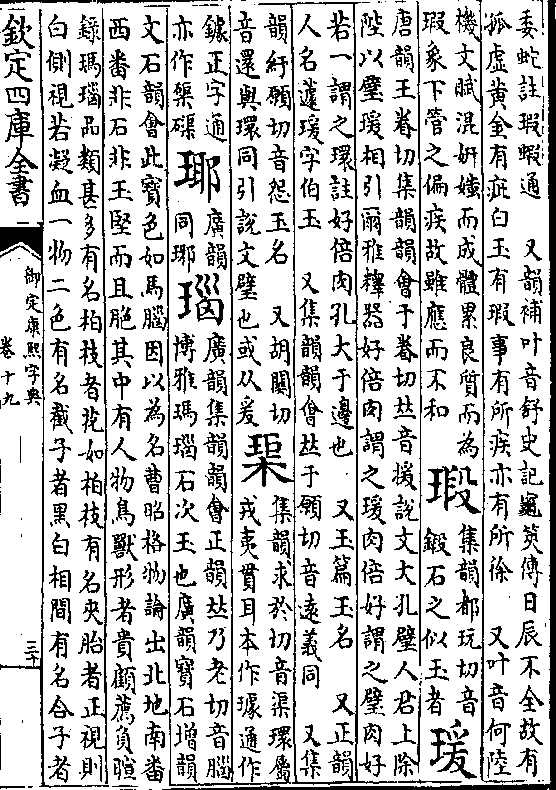 委蛇註瑕蝦通　又韻補叶音舒史記龜筴傳日辰不全故有
孤虛黃金有疵白玉有瑕事有所疾亦有所徐　又叶音何陸
機文賦混妍媸而成體累良質而為
瑕象下管之偏疾故雖應而不和
瑖
集韻都玩切音
鍛石之似玉者
瑗
唐韻王眷切集韻韻會于眷切𠀤音援說文大孔璧人君上除
陛以璧瑗相引爾雅釋器好倍肉謂之瑗肉倍好謂之璧肉好
若一謂之環註好倍肉孔大于邊也　又玉篇玉名　又正韻
人名蘧瑗字伯玉　又集韻韻會𠀤于願切音遠義同　又集
韻紆願切音怨玉名　又胡關切
音還與環同引說文璧也或从爰
集韻求於切音渠環屬
戎夷貫耳本作璩通作
鐻正字通
亦作磲
瑘
廣韻
同琊
瑙
廣韻集韻韻會正韻𠀤乃老切音腦
博雅瑪瑙石次玉也廣韻寶石增韻
文石韻會此寶色如馬腦因以為名曹昭格物論出北地南番
西番非石非玉堅而且脆其中有人物鳥獸形者貴顧薦負暄
錄瑪瑙品類甚多有名柏枝者花如柏枝有名夾胎者正視則
白側視若凝血一物二色有名截子者黑白相間有名合子者
欽定四庫全書
御定康熙字典
卷十九
三十